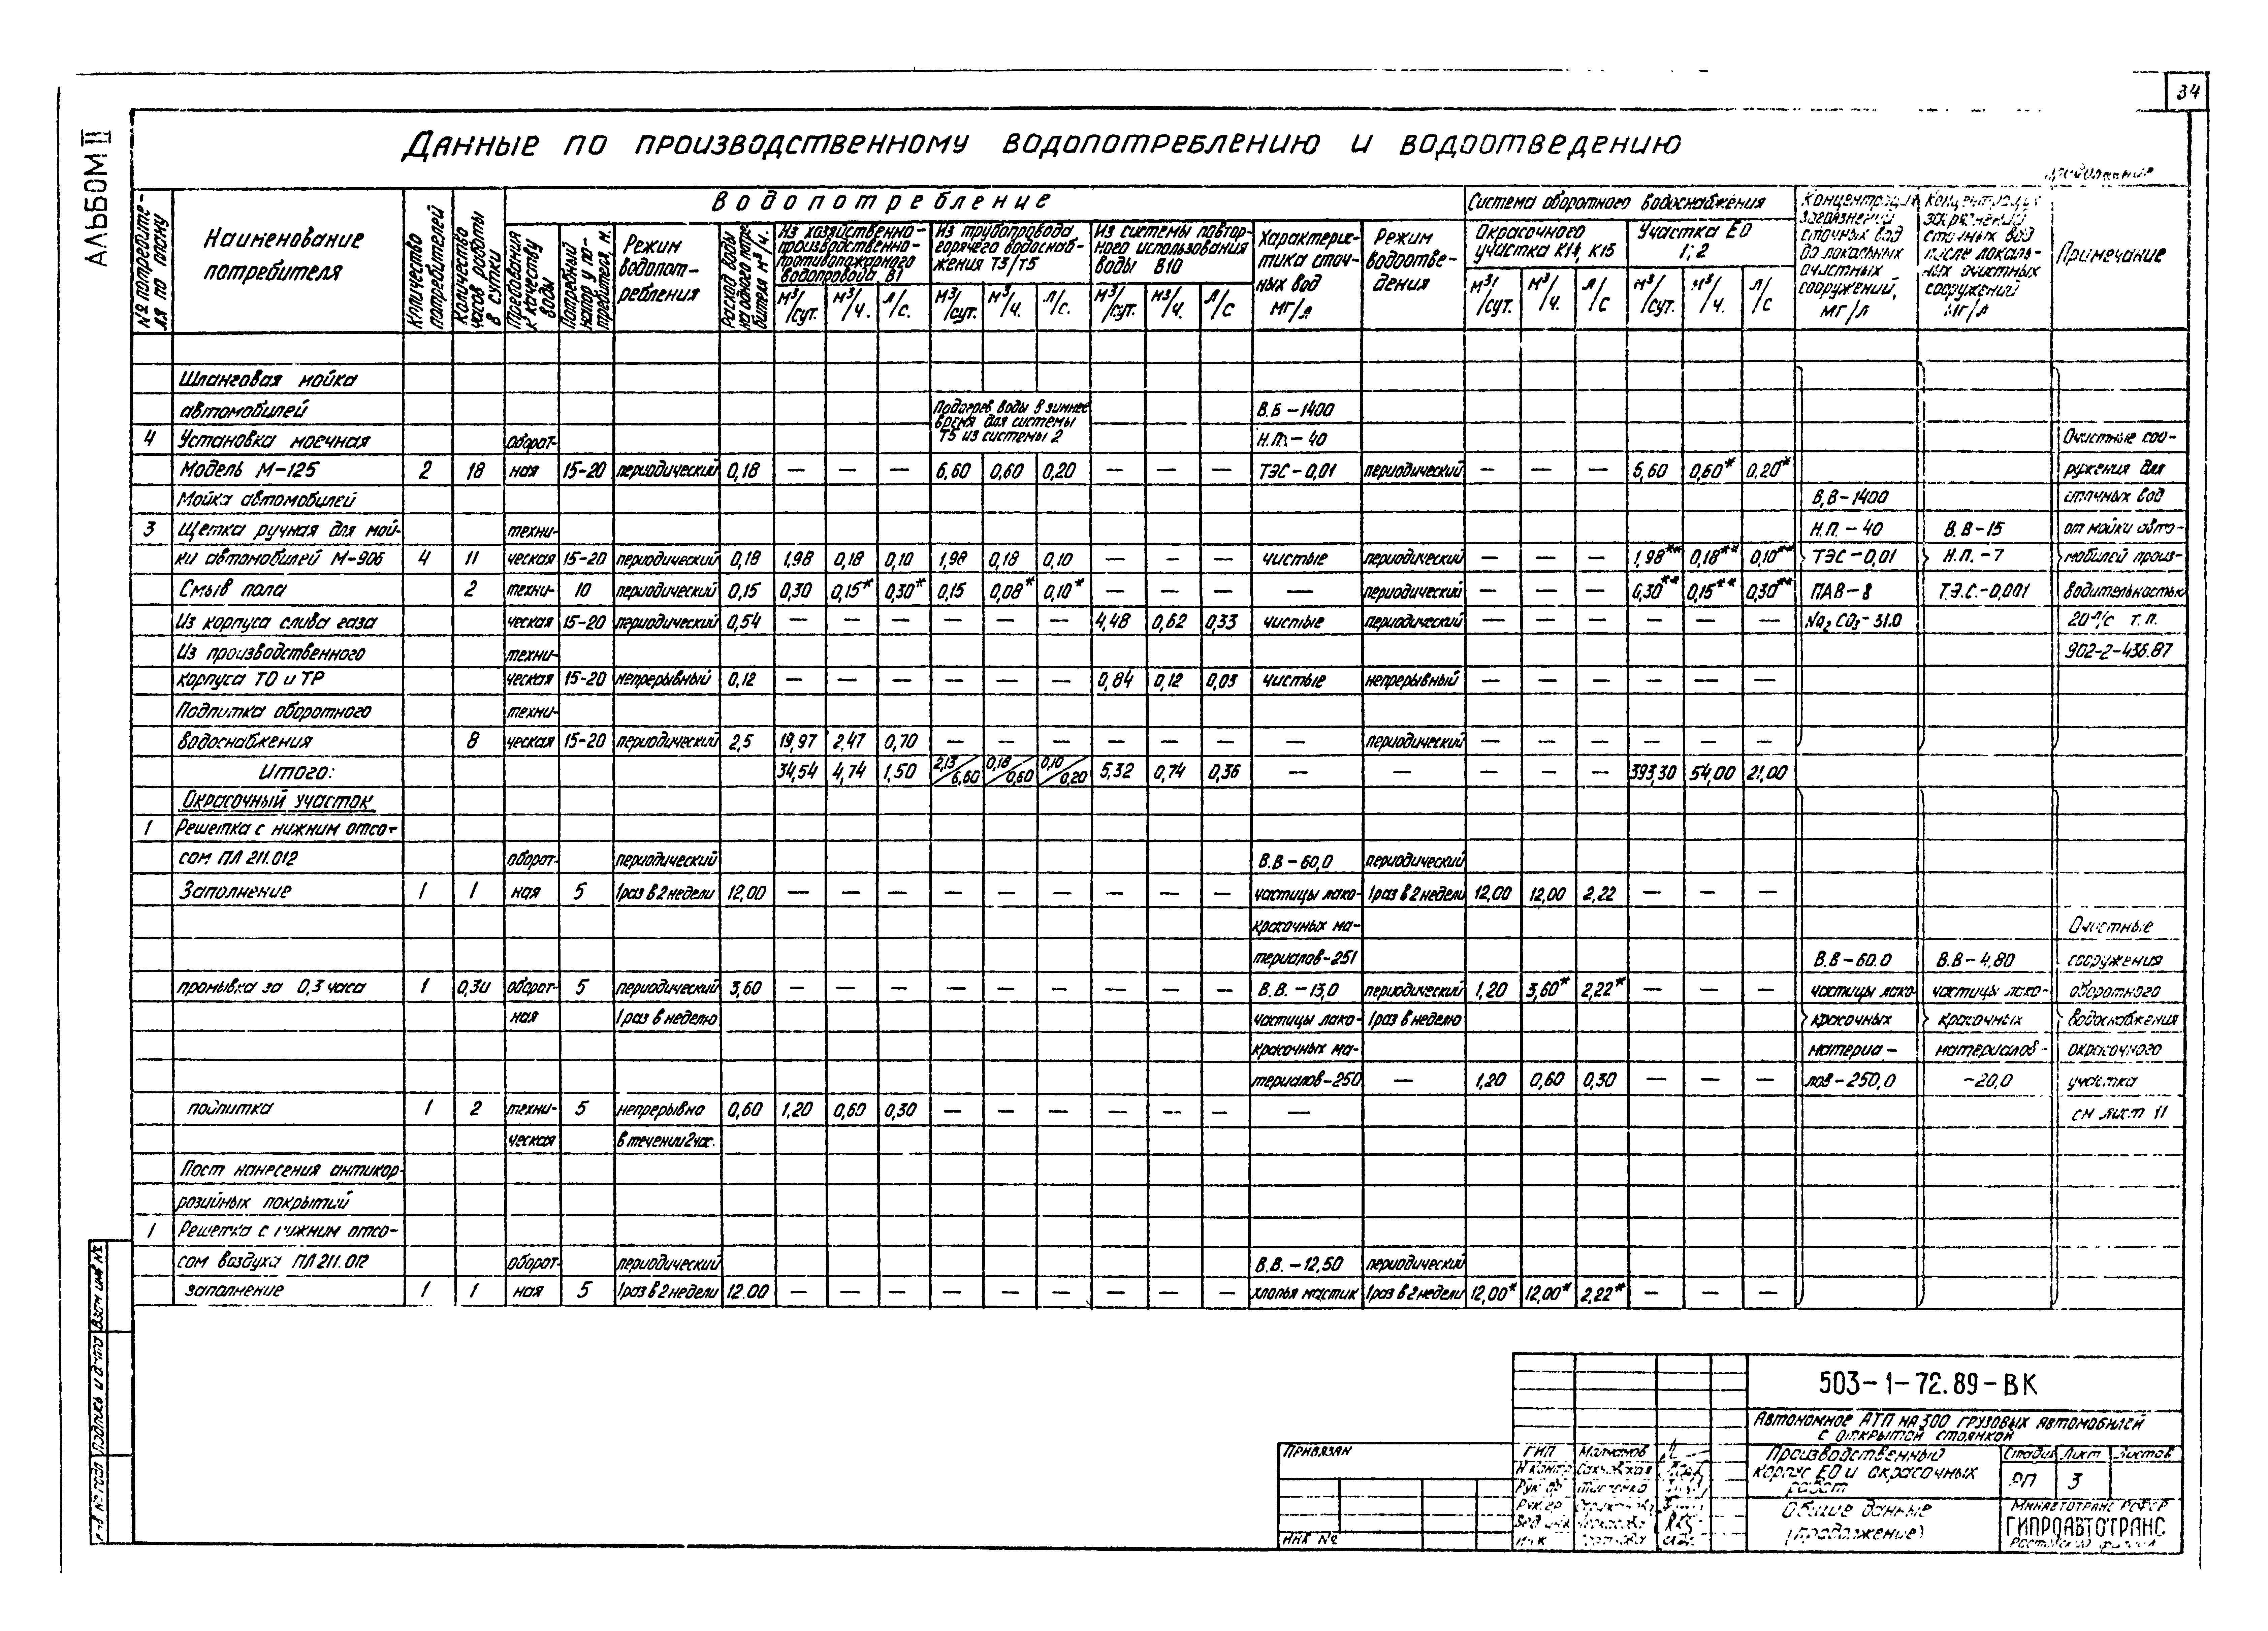 34
АЛЬБОМ II
Данные по производственному водопотреблению и водоотведению
продолжение
№ потребите-
ля по плану
Наименование
потребителя
Количество
потребителей
Количество
часов работы
в сутки
Водопотребление
Требования
к качеству
воды
Потребный
напор у по-
требителя м.
Режим
водопот-
ребления
Расход воды
на одного потре-
бителя м³/ч.
Из хозяйственно-
производственно-
противопожарного
водопровода В1
м³/сут. м³/ч. л/с.
Из трубопровода
горячего водоснаб-
жения Т3/Т5
м³/сут. м³/ч. л/с.
Из системы повтор-
ного использования
воды В10
м³/сут. м³/ч. л/с
Характерис-
тика сточ-
ных вод
мг/л
Режим
водоотве-
дения
Система оборотного водоснабжения
Окрасочного
участка К14, К15
м³/сут. м³/ч. л/с
Участка ЕО
1; 2
м³/сут. м³/ч. л/с
Концентрация
загрязнений
сточных вод
до локальных
очистных
сооружений,
мг/л
Концентрация
загрязнений
сточных вод
после локаль-
ных очистных
сооружений
мг/л
Примечание
Шланговая мойка
автомобилей Подогрев воды в зимнее В.Б – 1400
время для системы
4 Установка моечная оборот- Т5 из системы 2 Н.П. – 40 Очистные соо-
Модель М-125 2 18 ная 15-20 периодический 0,18 — — — 6,60 0,60 0,20 — — — ТЭС – 0,01 периодический — — — 6,60 0,60* 0,20* ружения для
Мойка автомобилей В,В – 1400 сточных вод
3 Щетка ручная для мой- техни- Н.П. – 40 В.В – 15 от мойки авто-
ки автомобилей М-906 4 11 ческая 15-20 периодический 0,18 1,98 0,18 0,10 1,98 0,18 0,10 — — — чистые периодический — — — 1,98** 0,18** 0,10** ТЭС – 0,01 Н.П. – 7 мобилей произ-
Смыв пола 2 техни- 10 периодический 0,15 0,30 0,15* 0,30* 0,15 0,08* 0,10* — — — — периодический — — — 0,30** 0,15** 0,30** ПАВ – 8 Т.Э.С. – 0,001 водительностью
Из корпуса слива газа ческая 15-20 периодический 0,54 — — — — — — 4,48 0,62 0,33 чистые периодический — — — — — — Na₂CO₃ – 31.0 20 л/с т.п.
Из производственного техни- 902-2-436.87
корпуса ТО и ТР ческая 15-20 непрерывный 0,12 — — — — — — 0,84 0,12 0,03 чистые непрерывный — — — — — —
Подпитка оборотного техни-
водоснабжения 8 ческая 15-20 периодический 2,5 19,97 2,47 0,70 — — — — — — — периодический — — — — — —
Итого: 34,54 4,74 1,50 2,13/6,60 0,18/0,60 0,10/0,20 5,32 0,74 0,36 — — — — — 393,30 54,00 21,00
Окрасочный участок
1 Решетка с нижним отсо-
сом ПЛ 211.012 оборот- периодический В.В – 60,0 периодический
Заполнение 1 1 ная 5 1раз в 2 недели 12.00 — — — — — — — — — частицы лако- 1раз в 2 недели 12,00 12,00 2,22 — — —
красочных ма- Очистные
териалов-251 В.В – 60.0 В.В – 4,80 сооружения
промывка за 0,3 часа 1 0,30 оборот- 5 периодический 3,60 — — — — — — — — — В.В. – 13,0 периодический 1,20 3,60* 2,22* — — — частицы лако- частицы лако- оборотного
ная 1раз в неделю частицы лако- 1раз в неделю красочных красочных водоснабжения
красочных ма- материа- материалов- окрасочного
териалов-250 — 1,20 0,60 0,30 — — — лов – 250,0 -20,0 участка
подпитка 1 2 техни- 5 непрерывно 0,60 1,20 0,60 0,30 — — — — — — — см лист 11
ческая в течении 2 час.
Пост нанесения антикор-
розийных покрытий
1 Решетка с нижним отсо-
сом воздуха ПЛ 211.012 оборот- периодический В.В. – 12,50 периодический
заполнение 1 1 ная 5 1раз в 2 недели 12.00 — — — — — — — — — хлопья мастик 1раз в 2 недели 12,00* 12,00* 2,22* — — —
Взам инв №
Подпись и дата
Инв № подл
503-1-72.89-ВК
Автономное АТП на 300 грузовых автомобилей
с открытой стоянкой
Привязан
Инв №
ГИП
Н контр
Рук гр
Рук. гр
Вед инж
Инж
Производственный
корпус ЕО и окрасочных
работ
Стадия Лист Листов
РП 3
Общие данные
(продолжение)
Минавтотранс РСФСР
ГИПРОАВТОТРАНС
Ростовский филиал